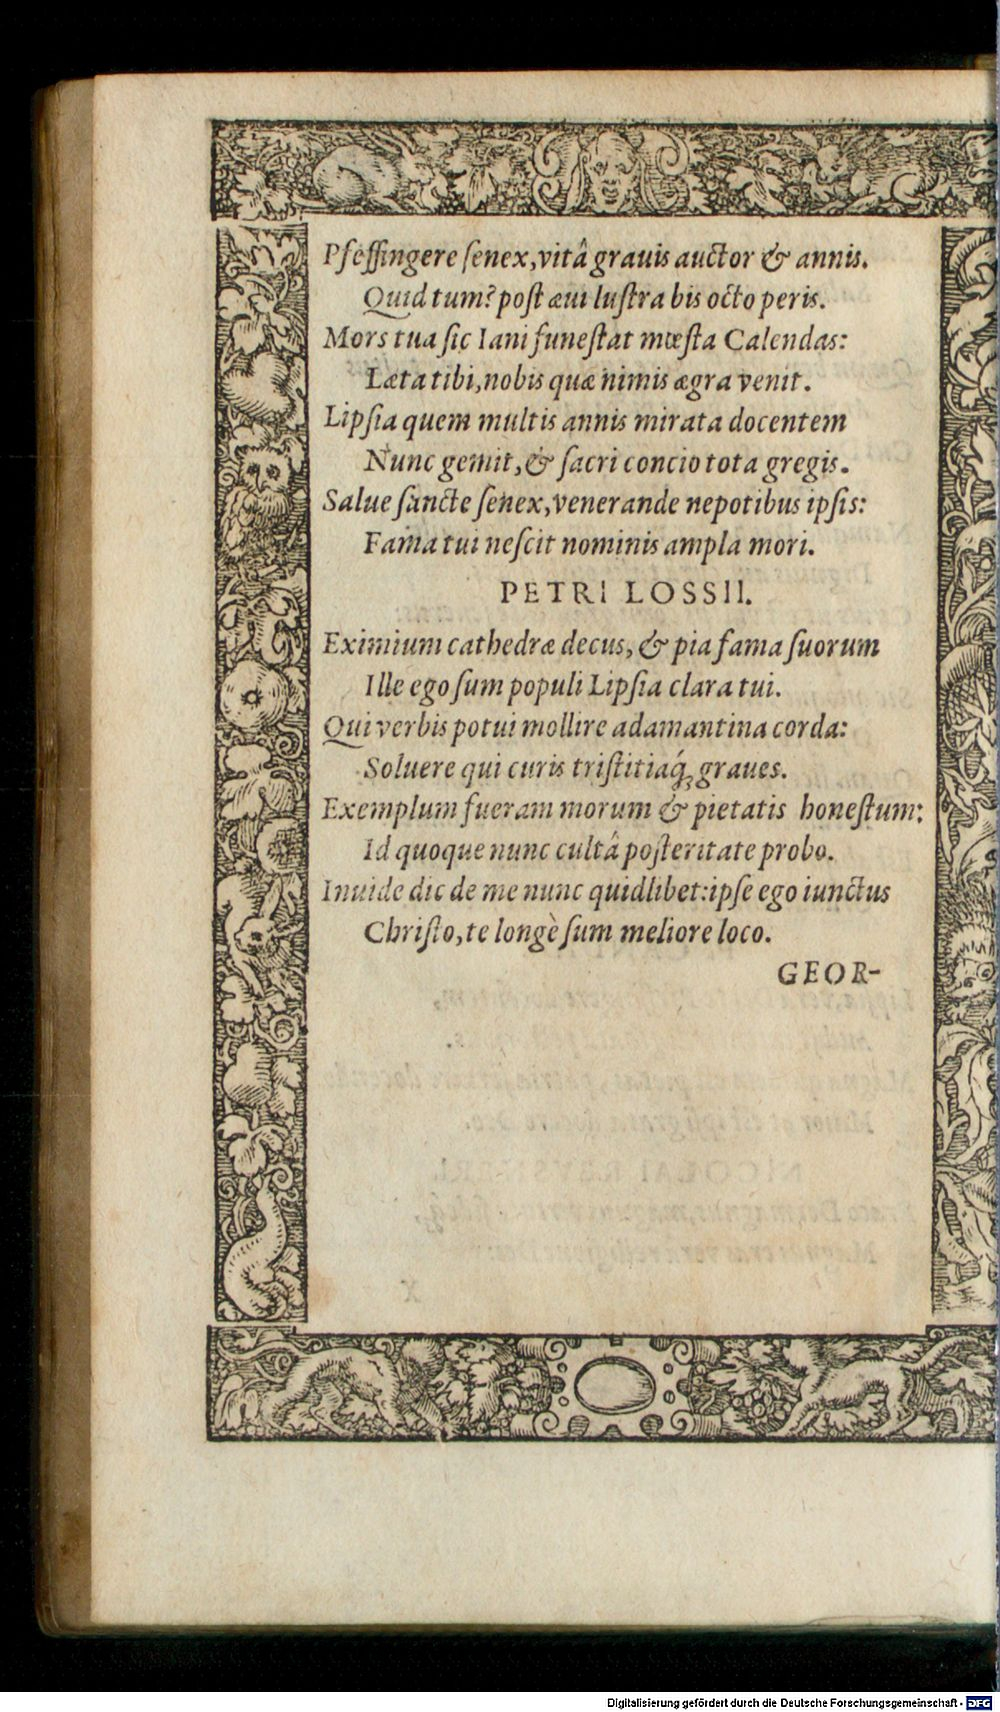 Pfeffingere ſenex, vitâ grauis auctor & annis.
Quid tum? poſt æui luſtra bis octo peris.
Mors tua ſic Iani funeſtat mœſta Calendas:
Læta tibi, nobis quæ nimis ægra venit.
Lipſia quem multis annis mirata docentem
Nunc gemit, & ſacri concio tota gregis.
Salue ſancte ſenex, venerande nepotibus ipſis:
Fama tui neſcit nominis ampla mori.
PETRI LOSSII.
Eximium cathedræ decus, & pia fama ſuorum
Ille ego ſum populi Lipſia clara tui.
Qui verbis potui mollire adamantina corda:
Soluere qui curis triſtitiaq́; graues.
Exemplum fueram morum & pietatis honeſtum:
Id quoque nunc cultâ poſteritate probo.
Inuide dic de me nunc quidlibet: ipſe ego iunctus
Chriſto, te longè ſum meliore loco.
GEOR-
Digitalisierung gefördert durch die Deutsche Forschungsgemeinschaft - DFG